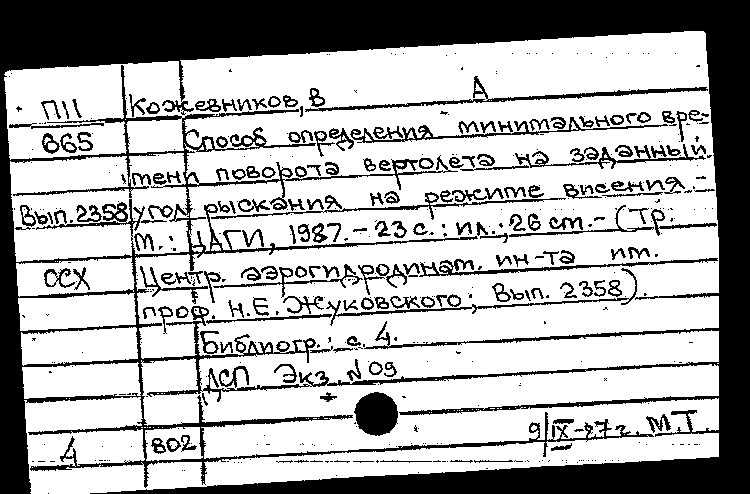 П11 Кожевников, В А
665 Способ определения минимального вре-
мени поворота вертолета на заданный
Вып. 2358 угол рыскания на режиме висения.-
М.: ЦАГИ, 1987.- 23 с.: ил.; 26 см.- (Тр.
ОСХ Центр. аэрогидродинам. ин-та им.
проф. Н.Е. Жуковского; Вып. 2358).
Библиогр.: с. 4.
ДСП. Экз. N 09.
4 802 9/IX- г. М.Т.